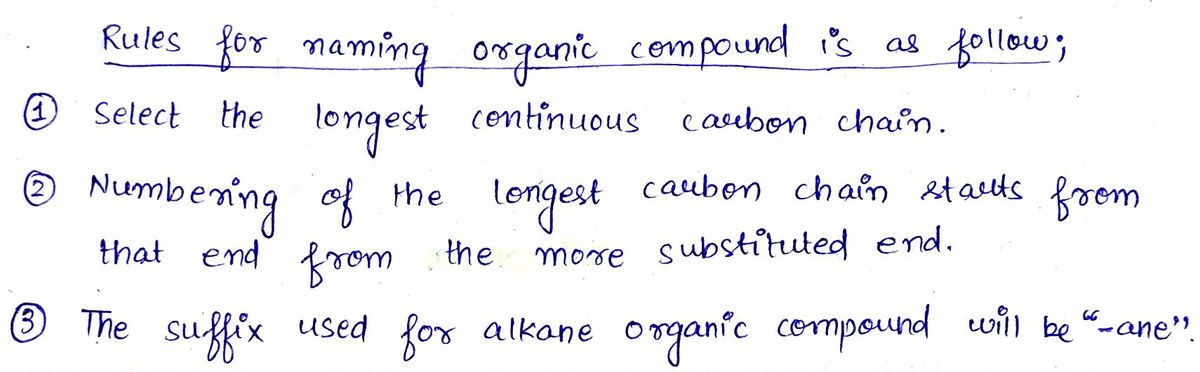 Rules for naming organic compound is as follow;
① Select the longest continuous carbon chain.
② Numbering of the longest carbon chain starts from
that end from the more substituted end.
③ The suffix used for alkane organic compound will be "-ane".